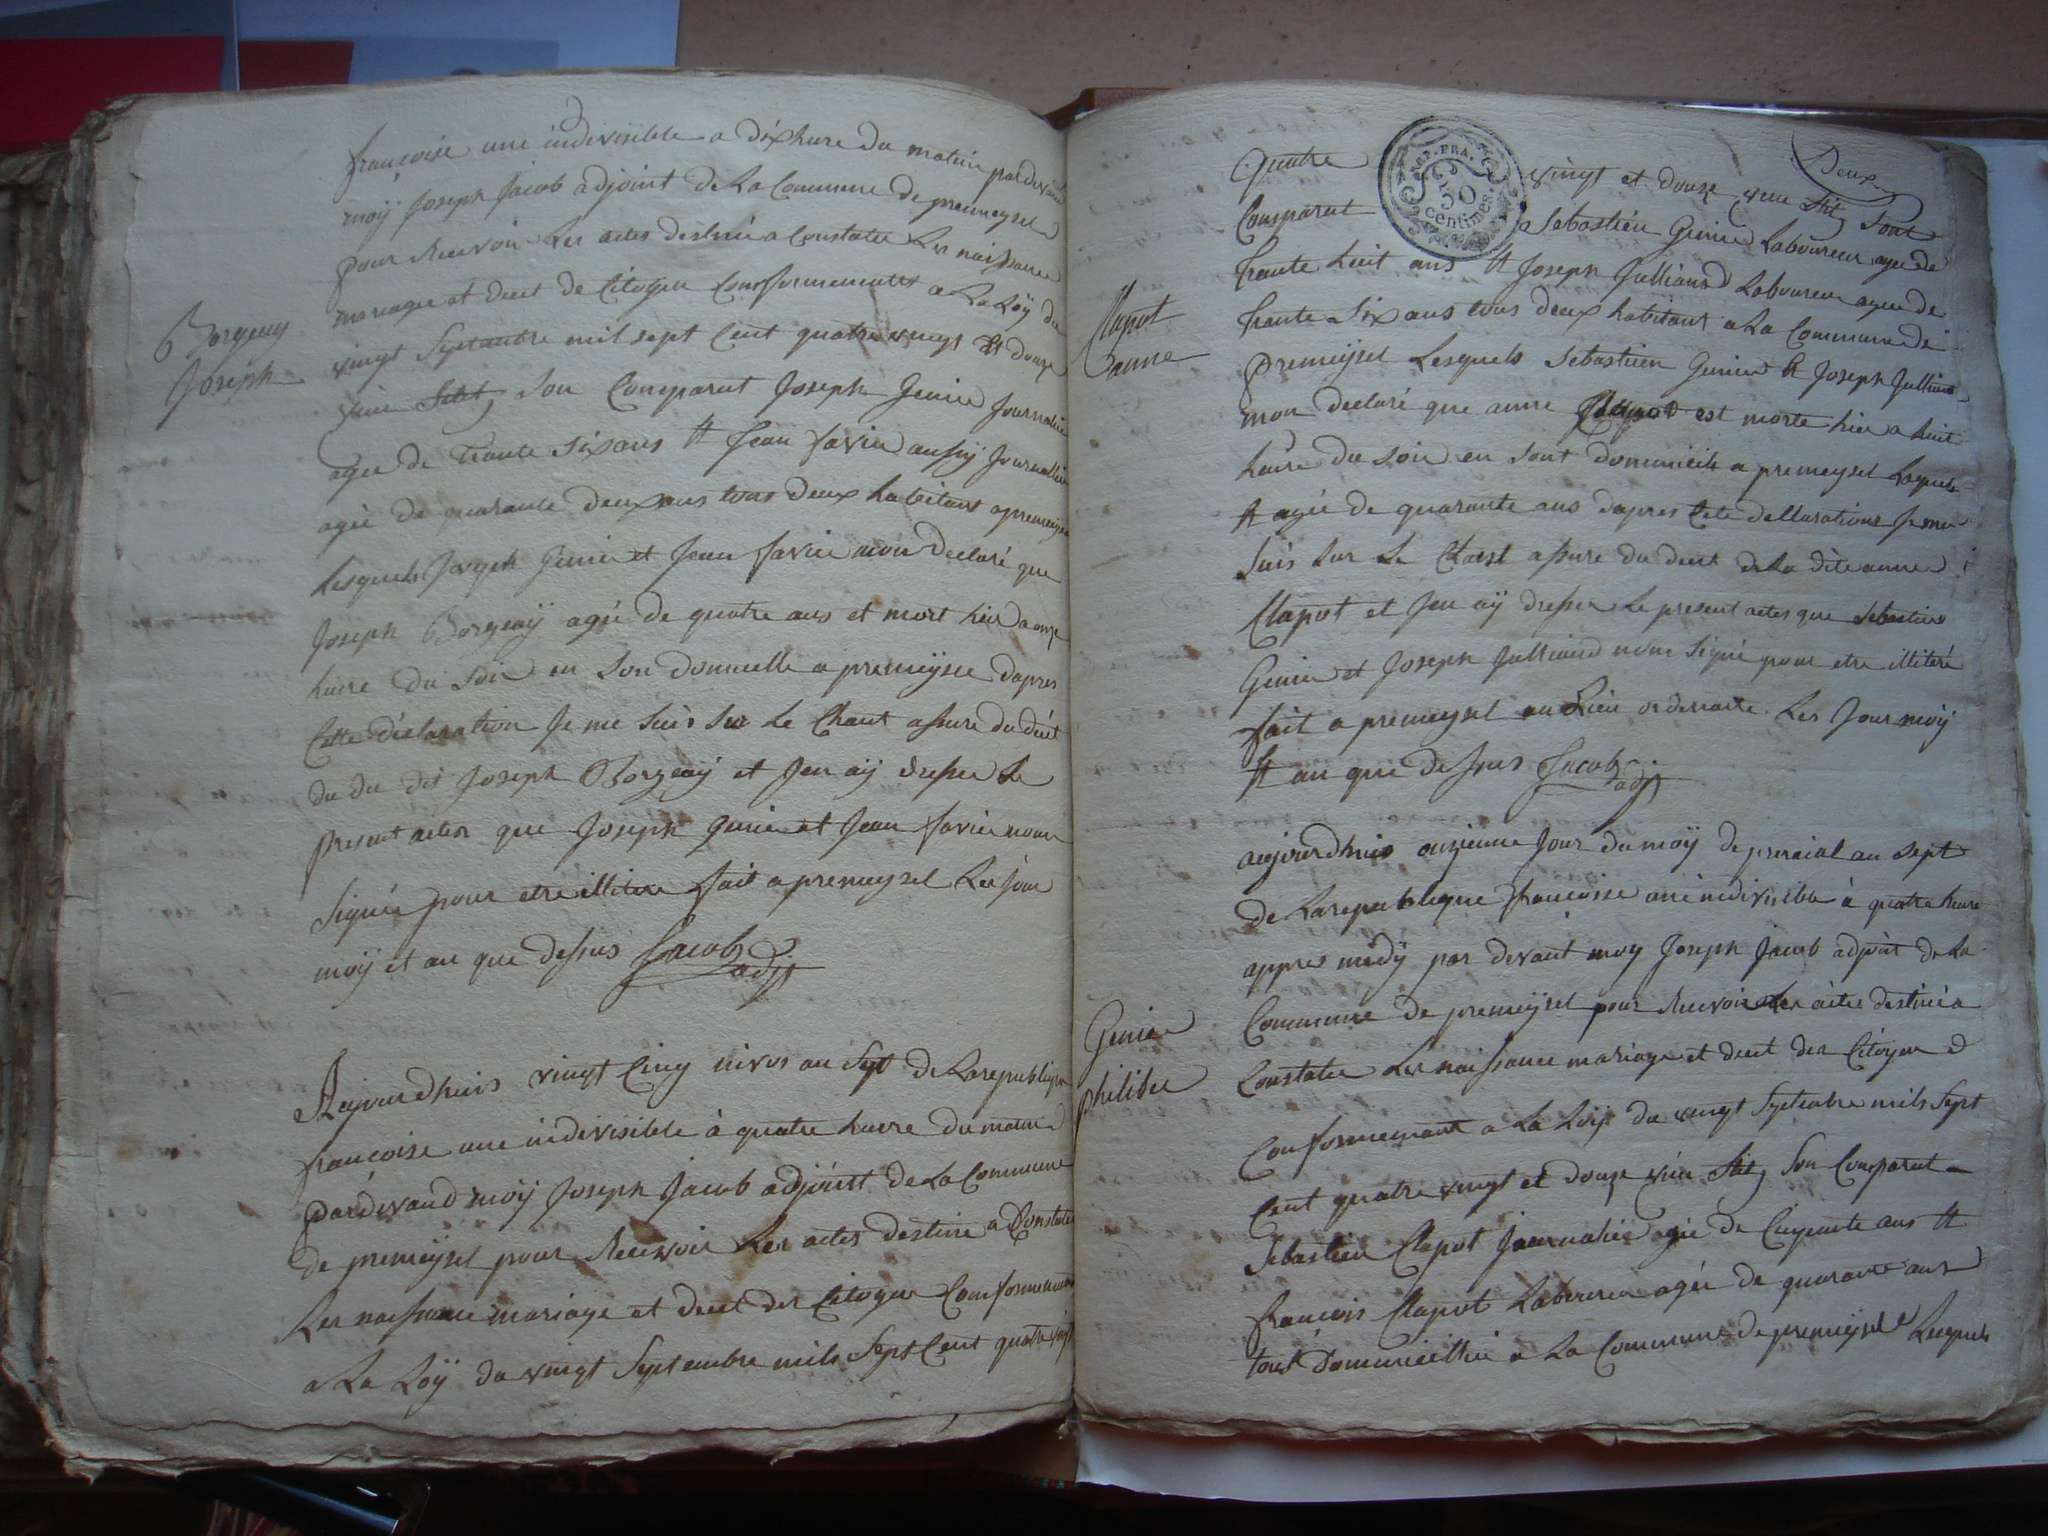 francoise une indivisible a dix hure du matin pardevant
moÿ Joseph Jacob adjoint de La Commune de premeysel
pour Recevoir Les actes destiné a Constater Les naissance
mariage et decet de Citoyen Conformement a La Loÿ du
vingt Septanbre mil sept Cent quatre vingt et douze
son Comparut Joseph Genin Journalié
agée de trante six ans et Jean favier aussÿ Journallié
agée de quarante deux ans tous deux habitant a premeysel
Lesquels Joseph Genin et Jean favier mon declaré que
Borgeay
Joseph
Joseph Borgeaÿ agée de quatre ans et mort hier a onze
heure du soir en son domicelle a premeÿsel dapres
Cette déclaration Je me suis sur Le Chant assure du décét
du du dit Joseph Borgeaÿ et Jen aÿ dresser Le
present actes que Joseph Genin et Jean favier nom
Signée pour etre illitere fait a premeysel Les Jour
moÿ et an que dessus Jacob adjt
Aujourdhuis vingt Cinq nivos an Sept de La republique
francoise une indivisible à quatre heure du matin
pardevand moÿ Joseph Jacob adjoint de La Commune
de premeÿsel pour Recevoir Les actes destiné a Constater
Les naissance mariage et decet des Citoyen Conformement
a La Loÿ du vingt Septembre mils Sept Cent quatre vingt
Deux
Quatre vingt et douze sont
Comparut Sebastien Genin Laboureur agée de
trante huit ans et Joseph Julliand Laboureur agée de
Clapot
anne
trante Six ans tous deux habitant a La Commune de
premeÿsel Lesquels Sebastien Genin et Joseph Julliand
mon declaré que anne Clapot est morte hier a huit
heure du soir en sont dommicile a premeysel Laquele
et agée de quarante ans dapres Cete dellaration Je me
Suis sur Le Chant assure du decet de La dite anne
Clapot et Jen aÿ dresser Le present actes que Sebastien
Genin et Joseph Julliand nom Signé pour etre illiteré
fait a premeysel au Lieu ordinaire Les Jour moÿ
et an que dessus Jacob adjt
aujourdhuis onzieme Jour du moÿ de prerial an sept
de La republique francoise une indivisible à quatre heure
appres midÿ par devant moy Joseph Jacob adjoit de La
Genin
philiber
Commune de premeÿsel pour Recevoir Les actes destiné a
Constater Les naissance mariage et decet des Citoyen
Conformemant a La Loÿ du vingt Septembre mils Sept
Cent quatre vingt et douze son Comparut
Sebastien Clapot Journalier agée de Cinquante ans et
francois Clapot Laboureur agée de quarante ans
tous dommicillié a La Commune de premeÿsel Lesquels
REP. FRA.
50
Centimes.